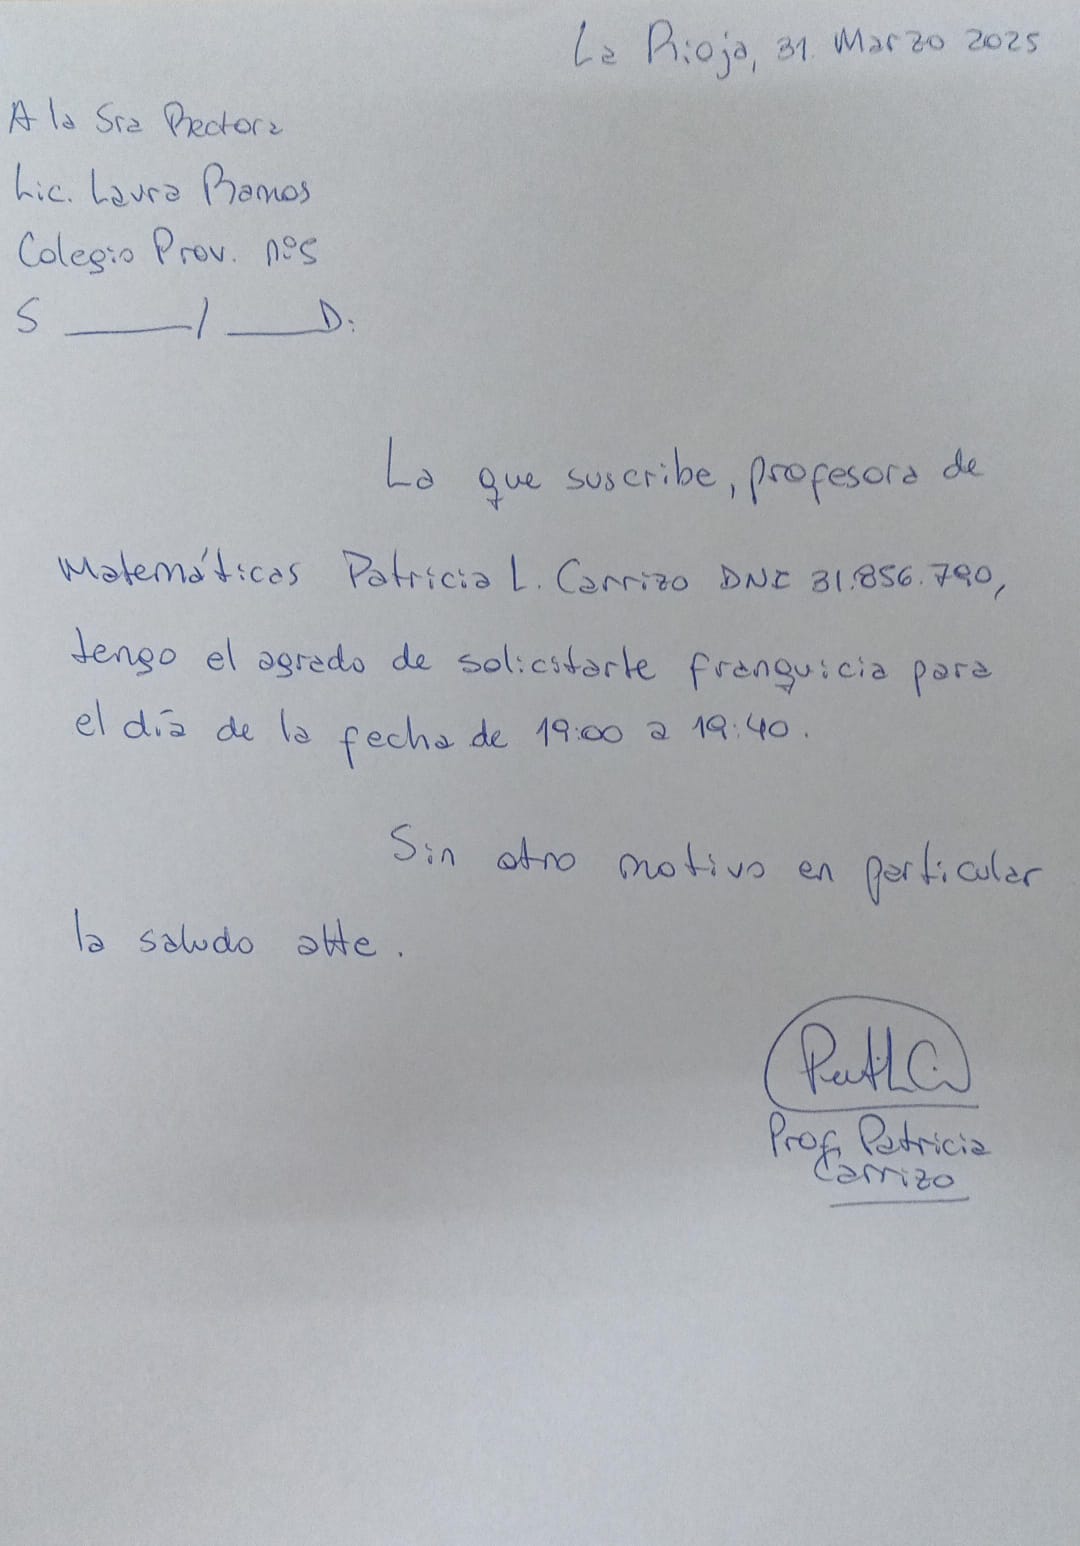 La Rioja, 31. Marzo 2025
A la Sra Rectora
Lic. Laura Ramos
Colegio Prov. nº5
S ____/____D:
La que suscribe, profesora de
Matemáticas Patricia L. Carrizo DNI 31.856.790,
tengo el agrado de solicitarte franquicia para
el día de la fecha de 19:00 a 19:40.
Sin otro motivo en particular
la saludo atte.
Prof. Patricia
Carrizo